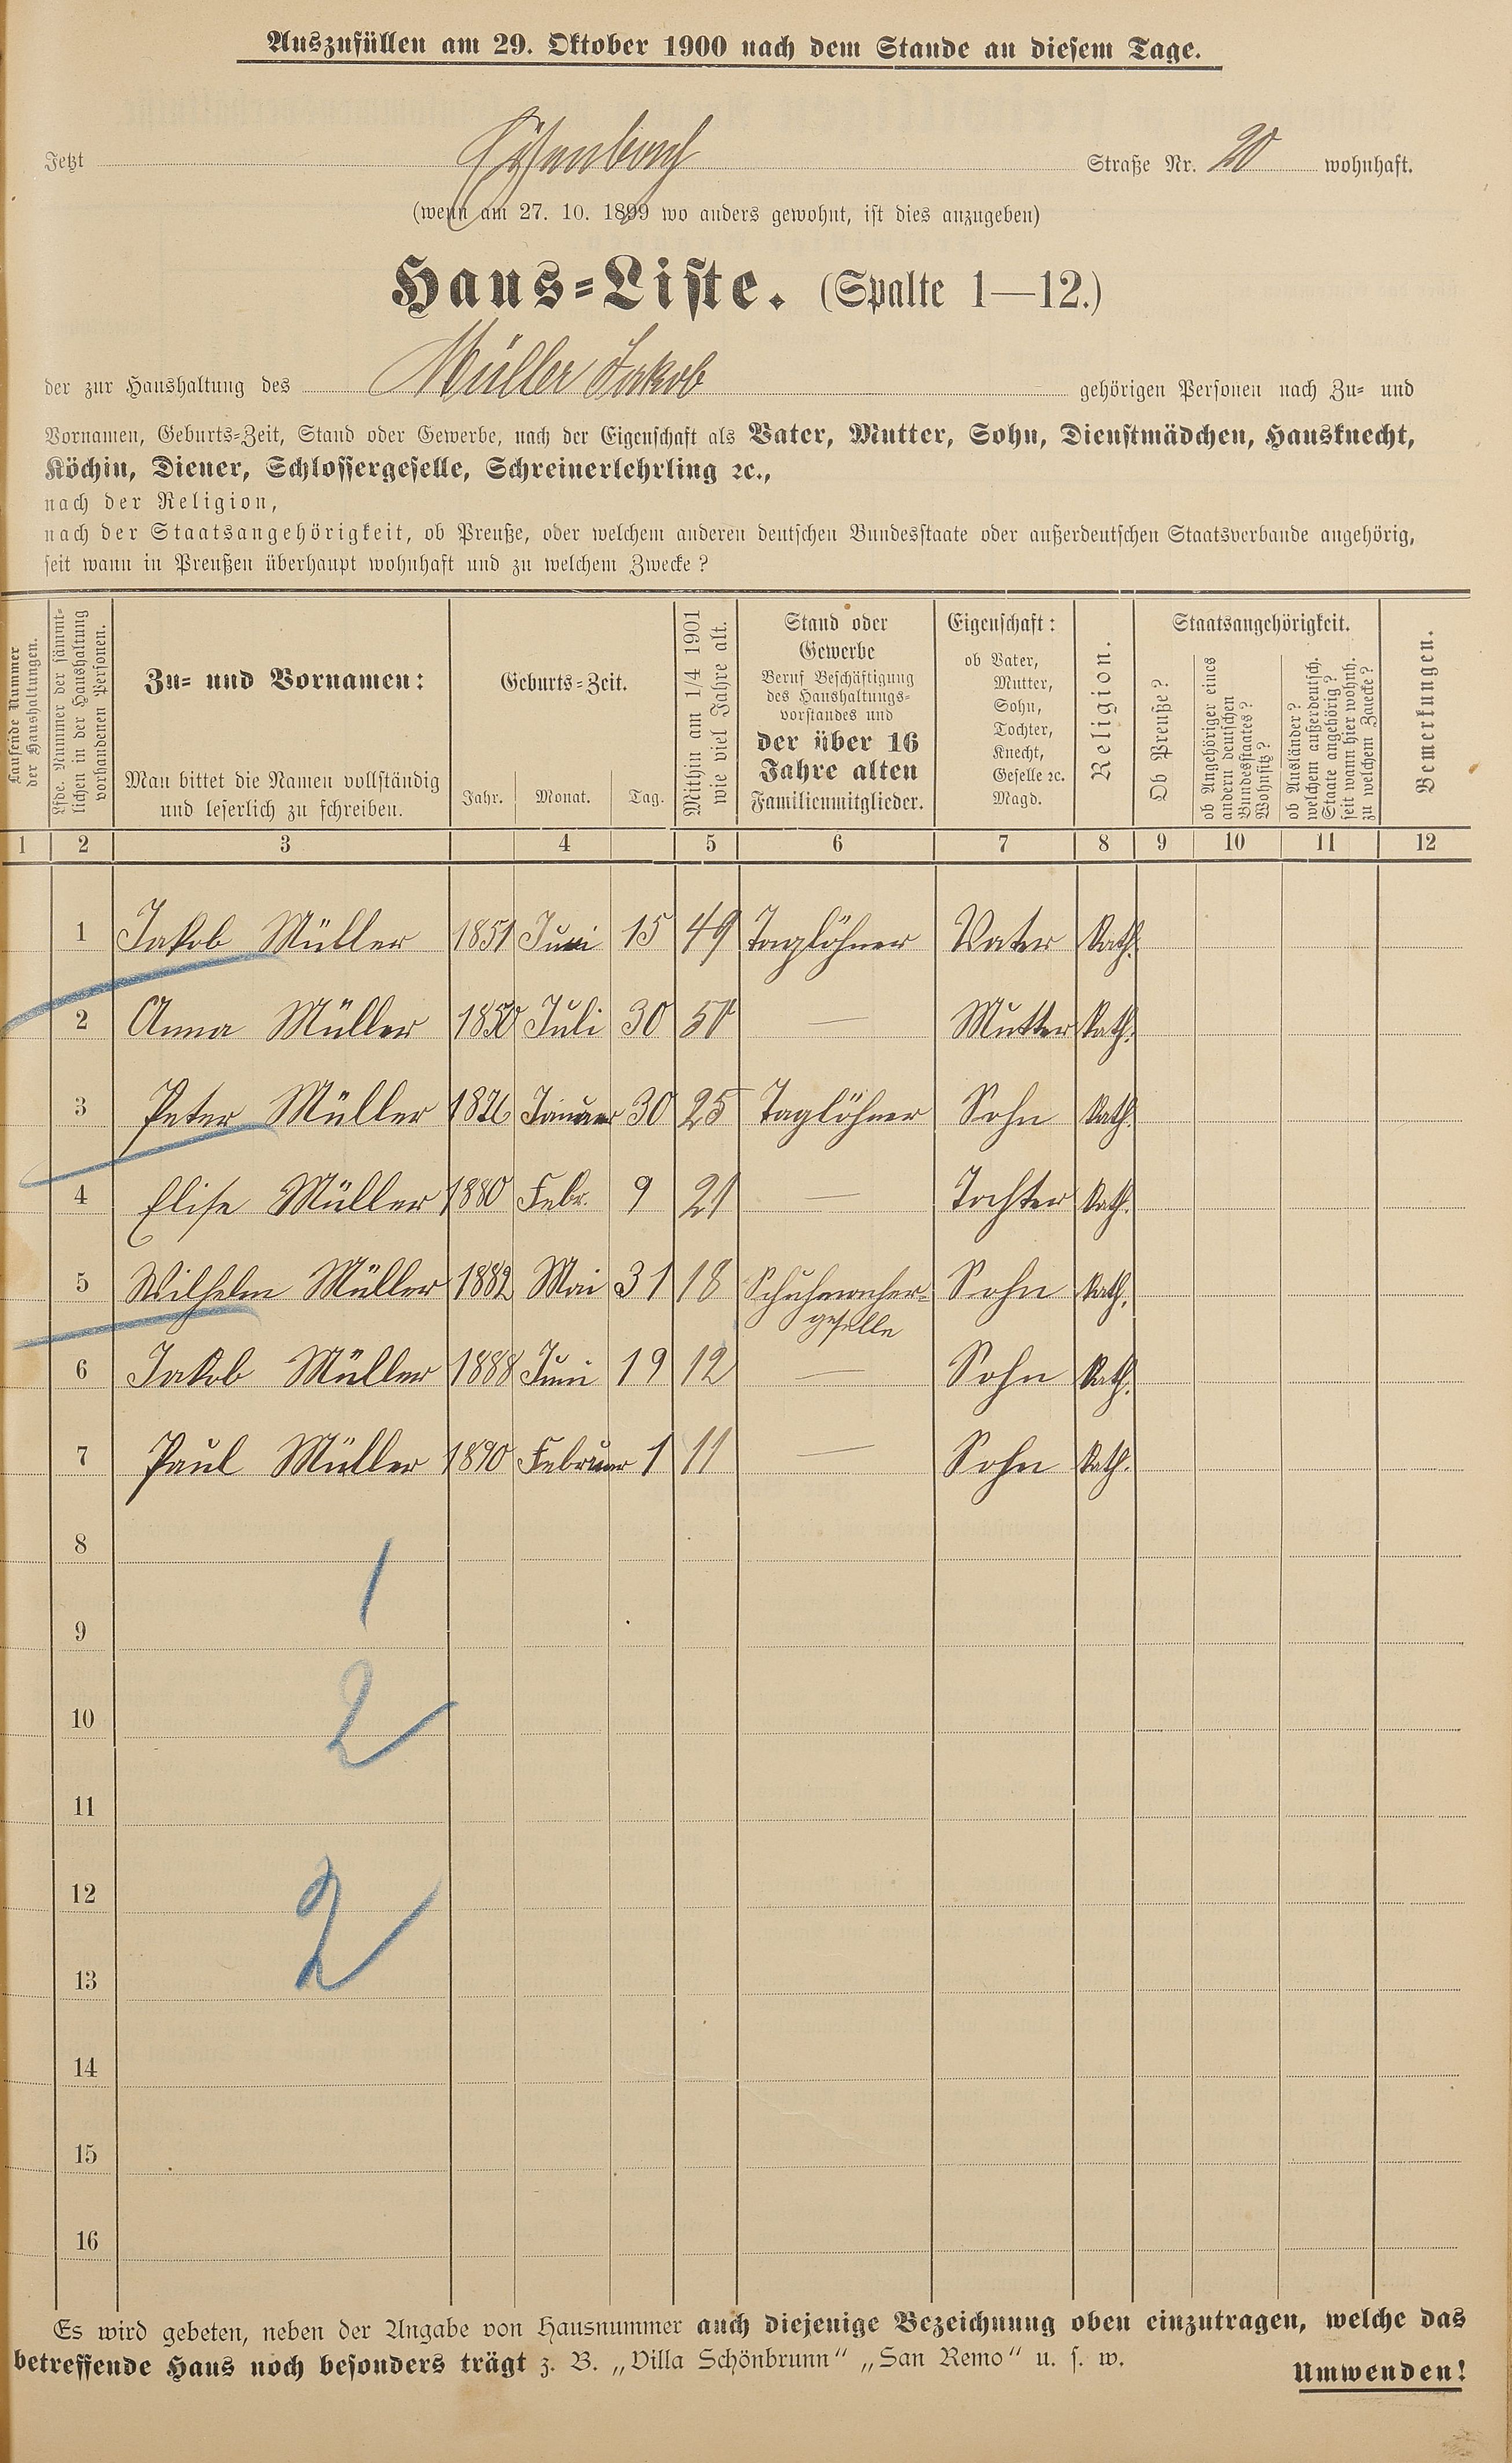 Auszufüllen am 29. Oktober 1900 nach dem Stande an diesem Tage.
Jetzt Straße Nr. 20 wohnhaft.
(wenn am 27. 10. 1899 wo anders gewohnt, ist dies anzugeben)
Haus-Liste. (Spalte 1—12.)
der zur Haushaltung des Müller Jakob gehörigen Personen nach Zu- und
Vornamen, Geburts-Zeit, Stand oder Gewerbe, nach der Eigenschaft als Vater, Mutter, Sohn, Dienstmädchen, Hausknecht,
Köchin, Diener, Schlossergeselle, Schreinerlehrling ꝛc.,
nach der Religion,
nach der Staatsangehörigkeit, ob Preuße, oder welchem anderen deutschen Bundesstaate oder außerdeutschen Staatsverbande angehörig,
seit wann in Preußen überhaupt wohnhaft und zu welchem Zwecke?
Laufende Nummer
der Haushaltungen.
Lfde. Nummer der sämmt-
lichen in der Haushaltung
vorhandenen Personen.
Zu- und Vornamen:
Man bittet die Namen vollständig
und leserlich zu schreiben.
Geburts-Zeit.
Jahr. Monat. Tag.
Mithin am 1/4 1901
wie viel Jahre alt.
Stand oder
Gewerbe
Beruf Beschäftigung
des Haushaltungs-
vorstandes und
der über 16
Jahre alten
Familienmitglieder.
Eigenschaft:
ob Vater,
Mutter,
Sohn,
Tochter,
Knecht,
Geselle ꝛc.
Magd.
Religion.
Staatsangehörigkeit.
Ob Preuße?
ob Angehöriger eines
andern deutschen
Bundesstaates?
Wohnsitz?
ob Ausländer?
welchem außerdeutsch.
Staate angehörig?
seit wann hier wohnh.
zu welchem Zwecke?
Bemerkungen.
1 2 3 4 5 6 7 8 9 10 11 12
1 Jakob Müller 1851 Juni 15 49 Taglöhner Vater Kath.
2 Anna Müller 1850 Juli 30 50 — Mutter Kath.
3 Peter Müller 1876 Januar 30 25 Taglöhner Sohn Kath.
4 Elise Müller 1880 Febr. 9 21 — Tochter Kath.
5 Wilhelm Müller 1882 Mai 31 18 Schuhmacher- Sohn Kath.
geselle
6 Jakob Müller 1888 Juni 19 12 — Sohn Kath.
7 Paul Müller 1890 Februar 1 11 — Sohn Kath.
8
1
9
10
2
11
12
2
13
14
15
16
Es wird gebeten, neben der Angabe von Hausnummer auch diejenige Bezeichnung oben einzutragen, welche das
betreffende Haus noch besonders trägt z. B. „Villa Schönbrunn“ „San Remo“ u. s. w.
Umwenden!